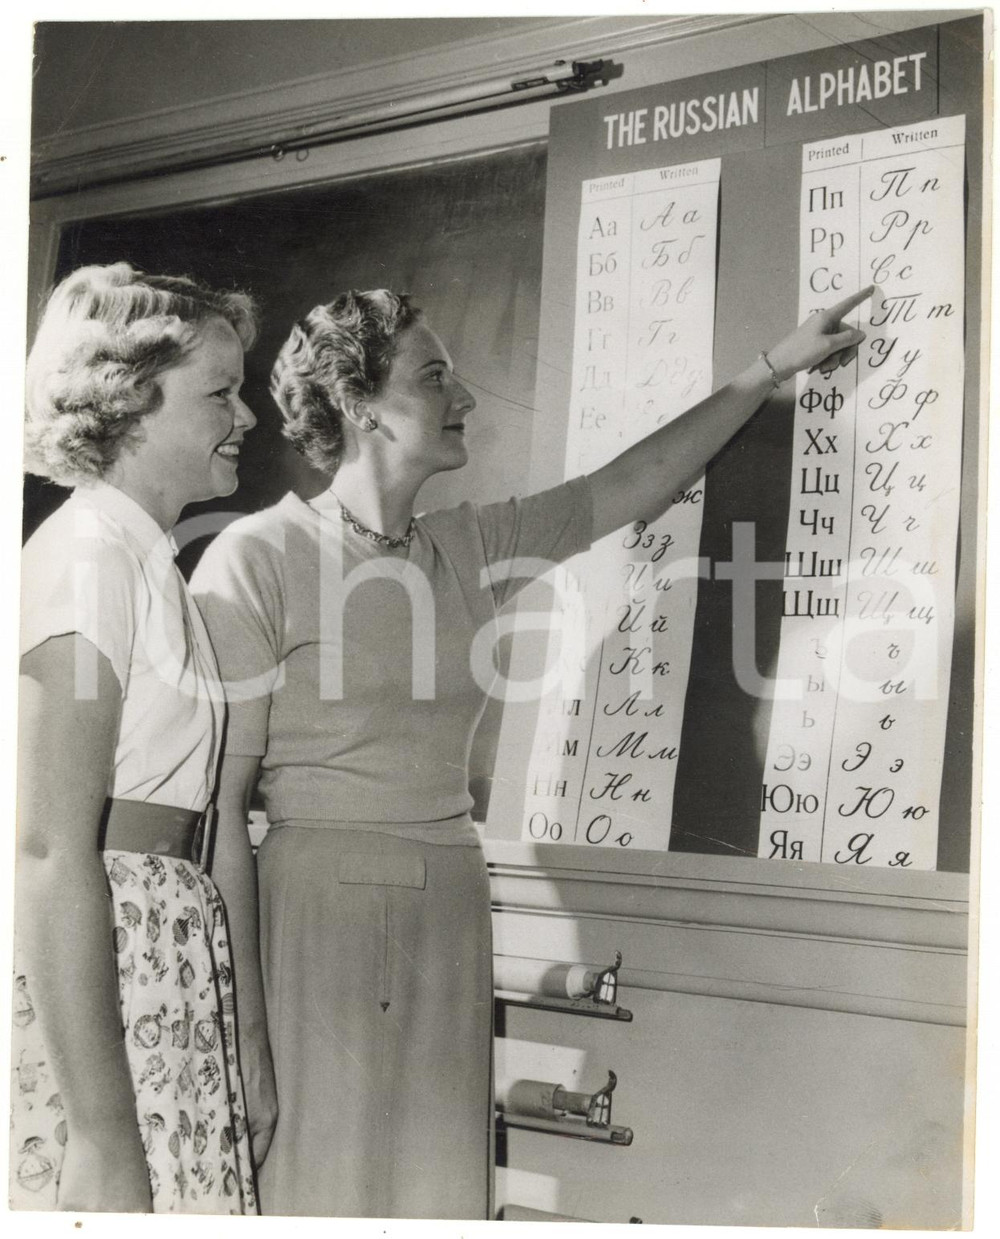 THE RUSSIAN ALPHABET
Printed Written
Аа А а
Бб Б б
Вв В в
Гг Г г
Дд Д д
Ее е
ж
Зз з
И и
Й й
К к
л Л л
м М м
Нн Н н
Оо О о
Printed Written
Пп П п
Рр Р р
Сс С с
Т т
У у
Фф Ф ф
Хх Х х
Цц Ц ц
Чч Ч ч
Шш Ш ш
Щщ Щ щ
Ъ ъ
Ы ы
Ь ь
Ээ Э э
Юю Ю ю
Яя Я я
iCharta